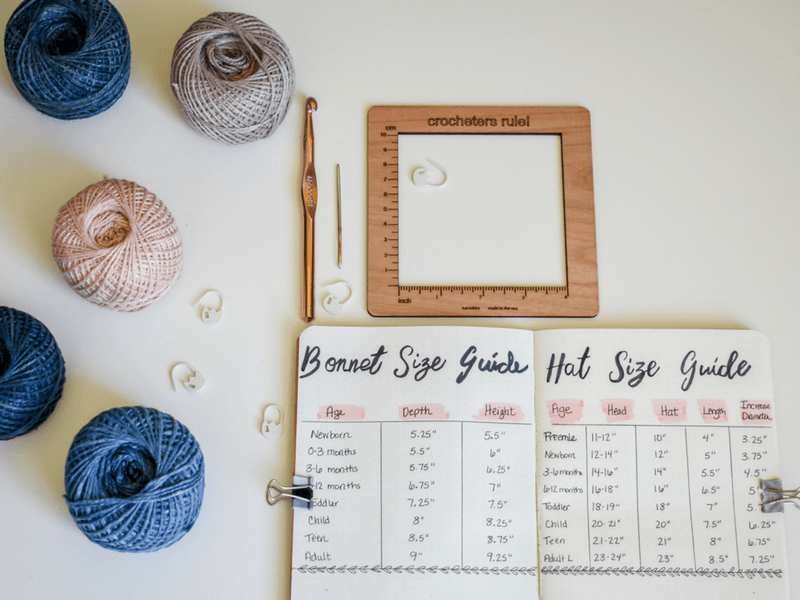 crocheters rule!
cm
10
9
8
7
6
5
4
3
2
1
inch
1 2 3 4
made in the usa
Bonnet Size Guide
Age Depth Height
Newborn 5.25" 5.5"
0-3 months 5.5" 6"
3-6 months 5.75" 6.25"
-12 months 6.75" 7"
Toddler 7.25" 7.5"
Child 8" 8.25"
Teen 8.5" 8.75"
Adult 9" 9.25"
Hat Size Guide
Age Head Hat Length Increase Diameter
Preemie 11-12" 10" 4" 3.25"
Newborn 12-14" 12" 5" 3.75"
3-6 months 14-16" 14" 5.5" 4.5"
6-12 months 16-18" 16" 6.5" 5
Toddler 18-19" 18" 7" 5.
Child 20-21" 20" 7.5" 6.25"
Teen 21-22" 21" 8" 6.75"
Adult L 23-24" 23" 8.5" 7.25"